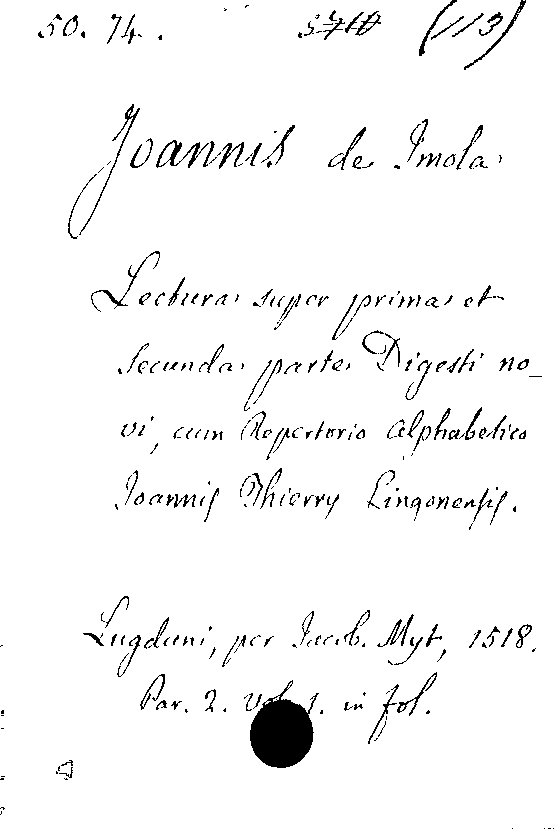 50. 74. 3710 (113)
Joannis de Imola
Lectura super prima et
secunda parte Digesti no-
vi, cum Repertorio Alphabetico
Joannis Thierry Lingonensis.
Lugduni, per Jacob. Myt, 1518.
Par. 2. Vol. 1. in fol.